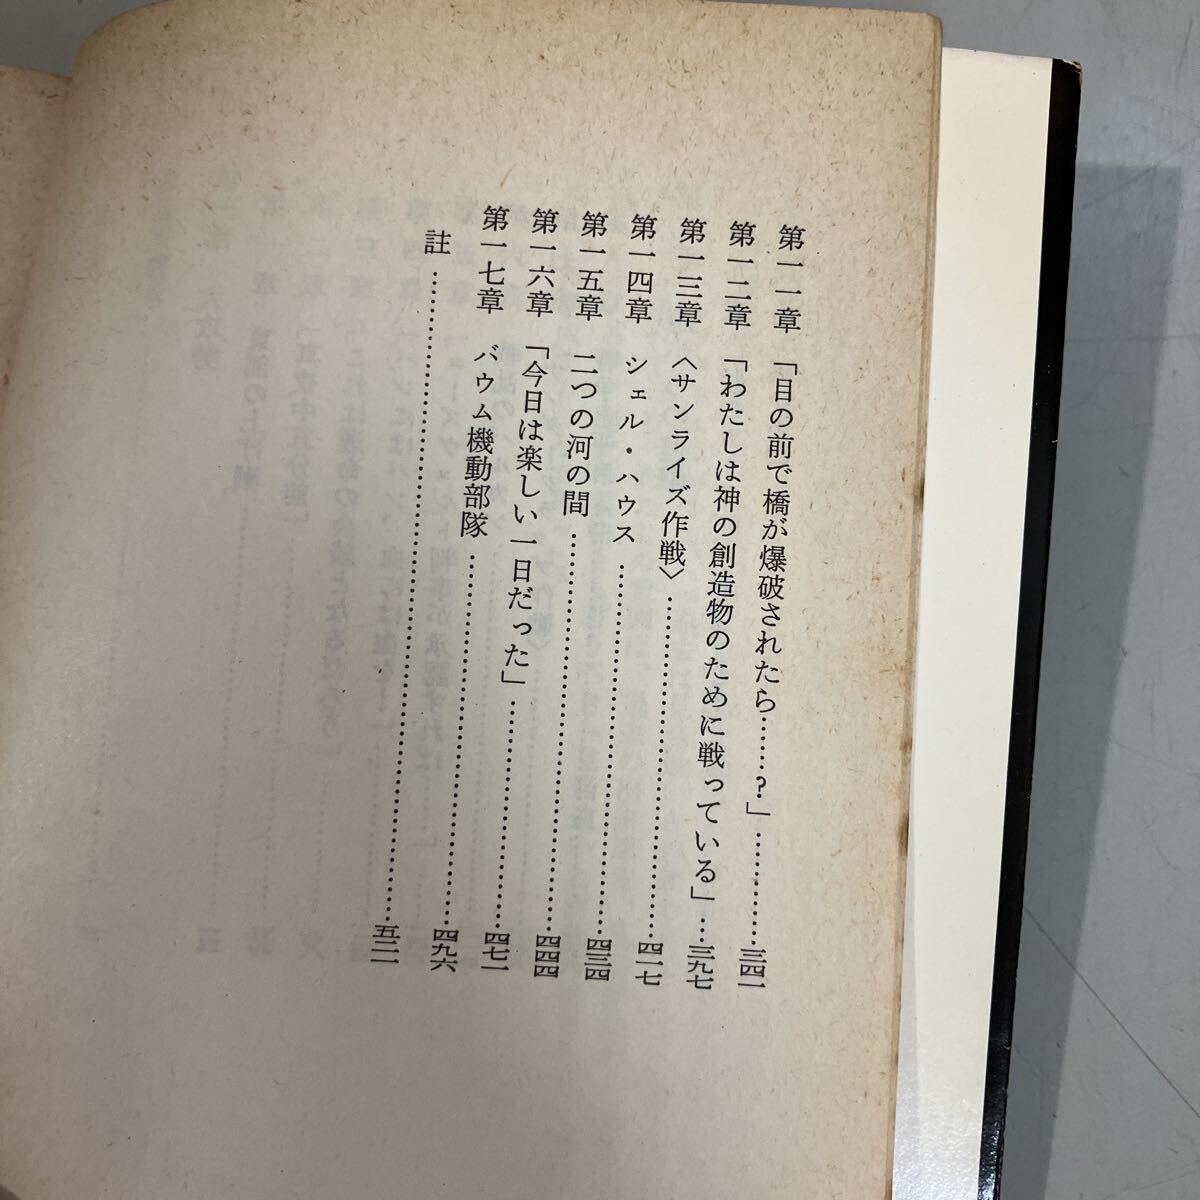 第一一章　「目の前で橋が爆破されたら……？」…………三四一
第一二章　「わたしは神の創造物のために戦っている」……三九七
第一三章　〈サンライズ作戦〉…………四一七
第一四章　シェル・ハウス…………四三四
第一五章　二つの河の間…………四四四
第一六章　「今日は楽しい一日だった」…………四七一
第一七章　バウム機動部隊…………四九六
註…………五二一